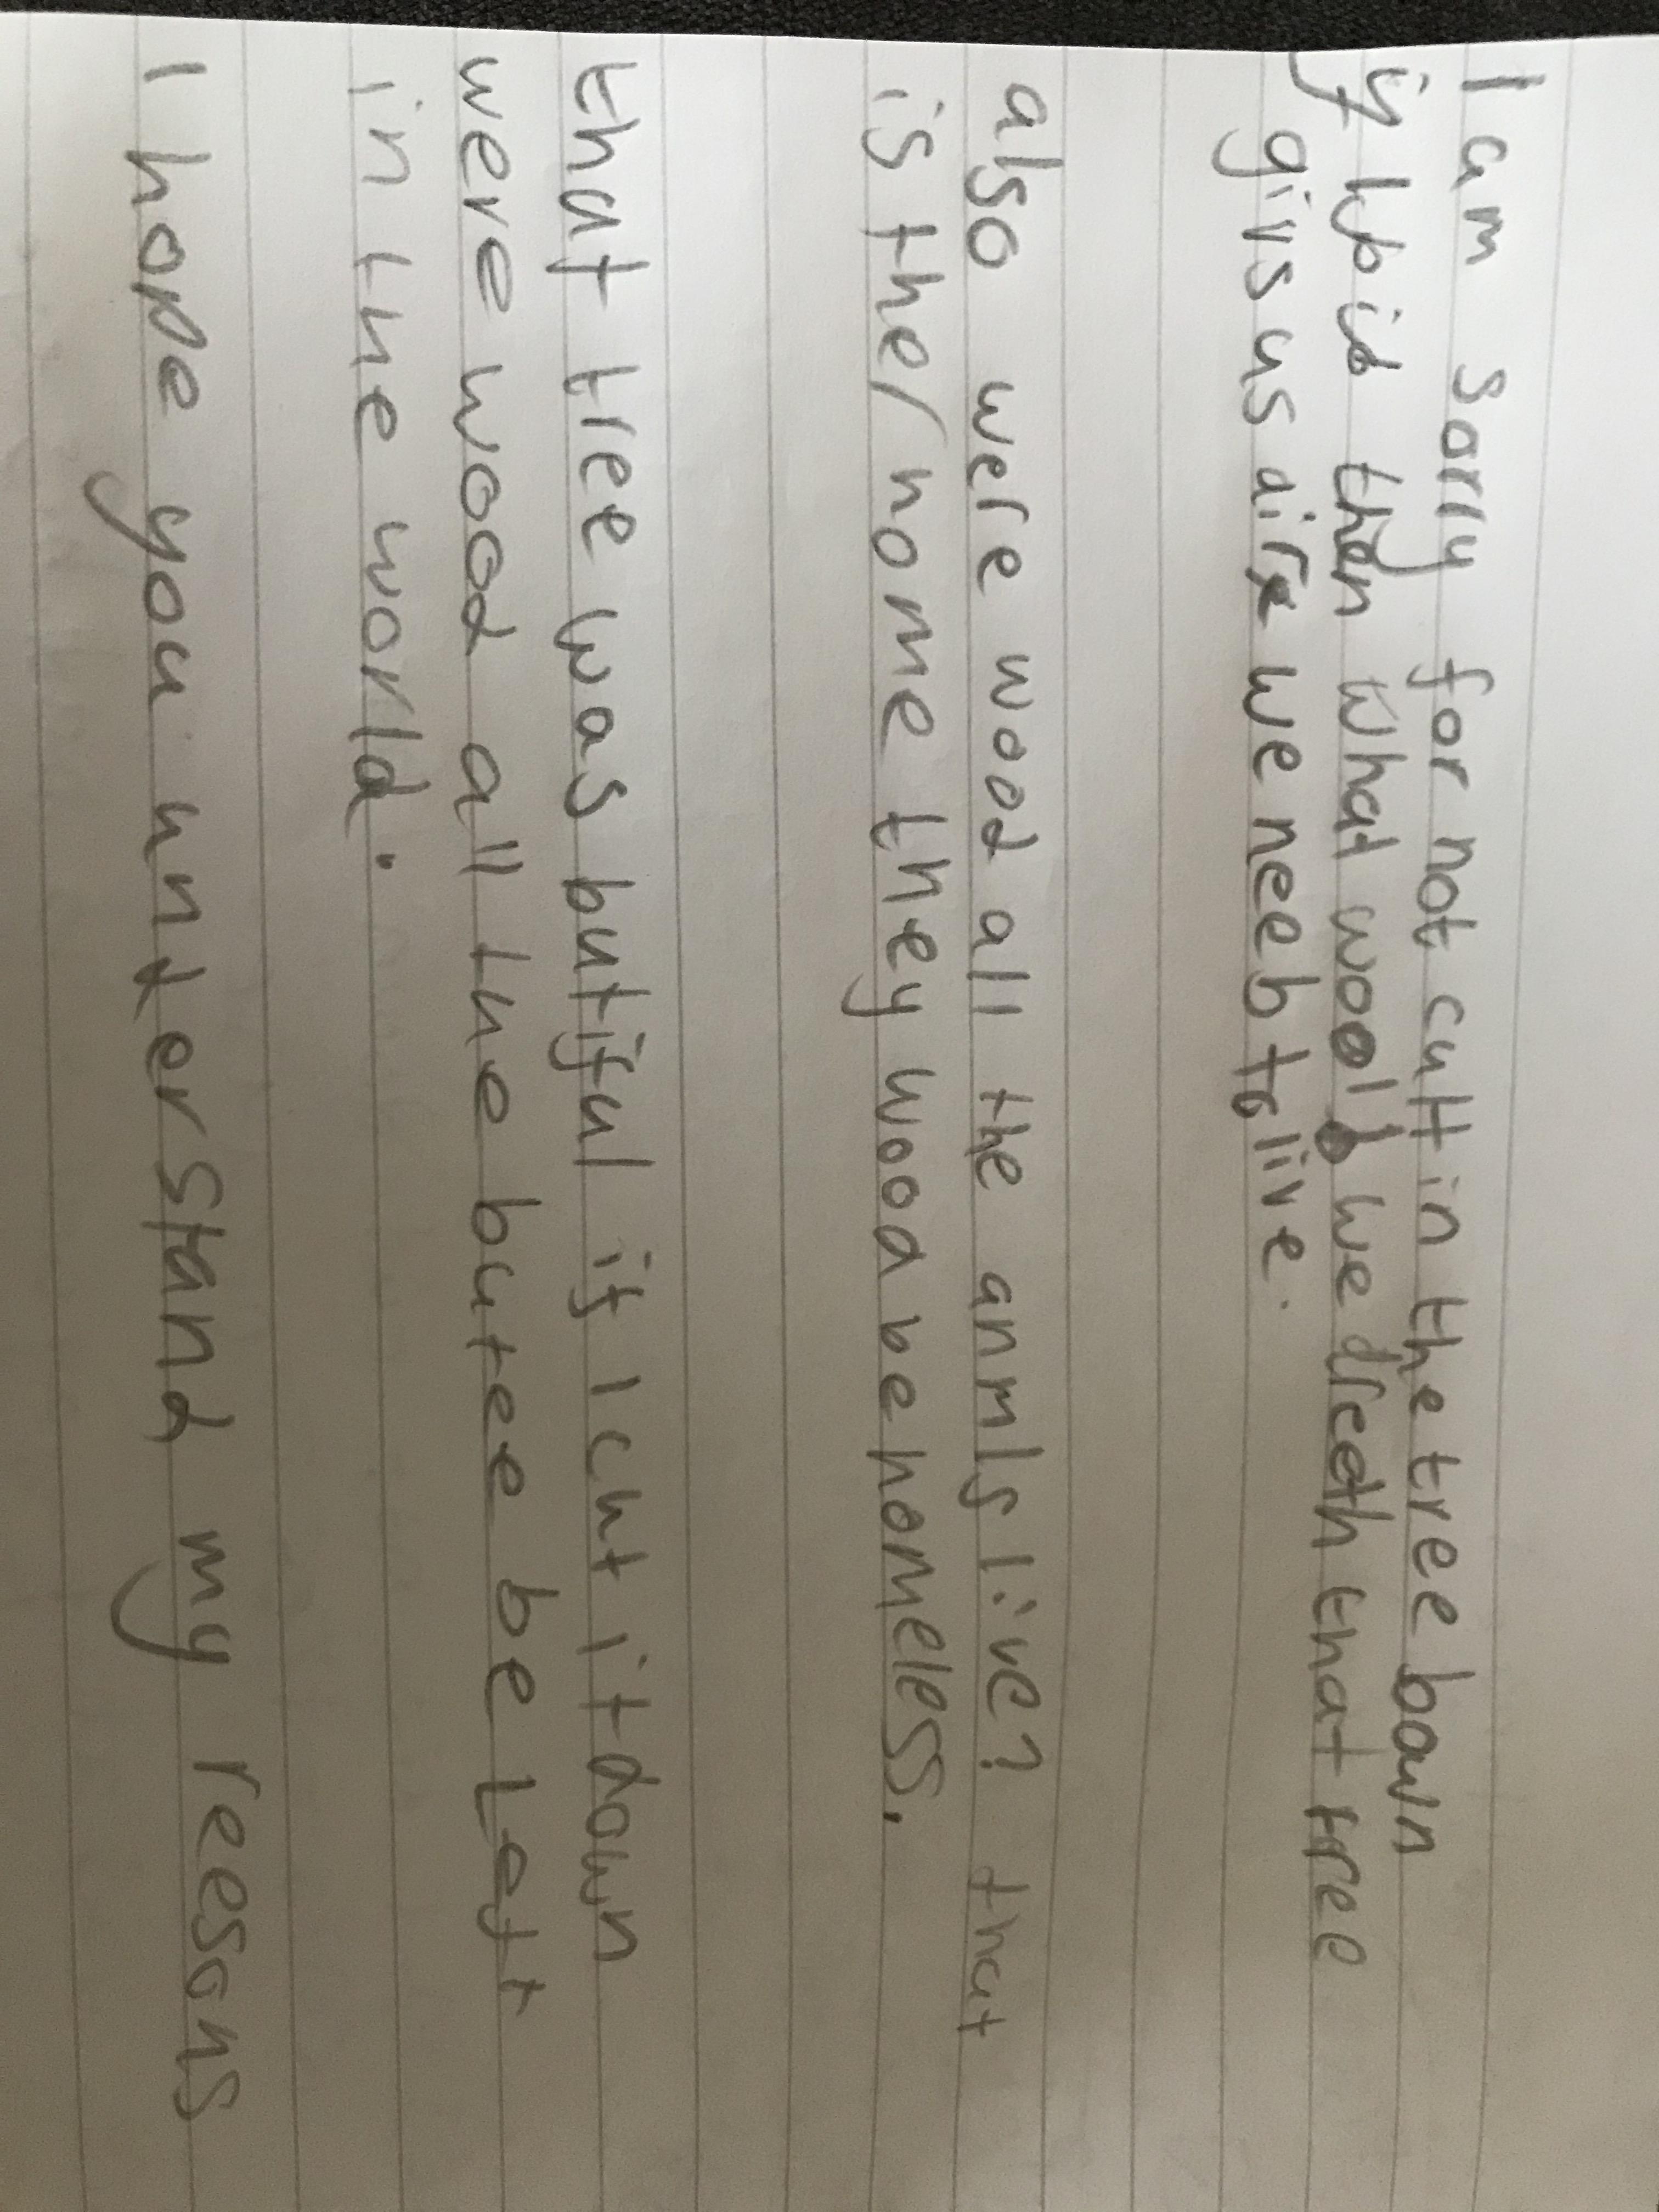 I am sorry for not cutt in the tree bown
if I did then what wool we dreeth that tree
givs us air we neeb to live.
also were wood all the anmls live? that
is ther home they wood be homeless.
that tree was butiful if I cut it down
were wood all the butee be Left
in the world.
I hope you understand my reesons